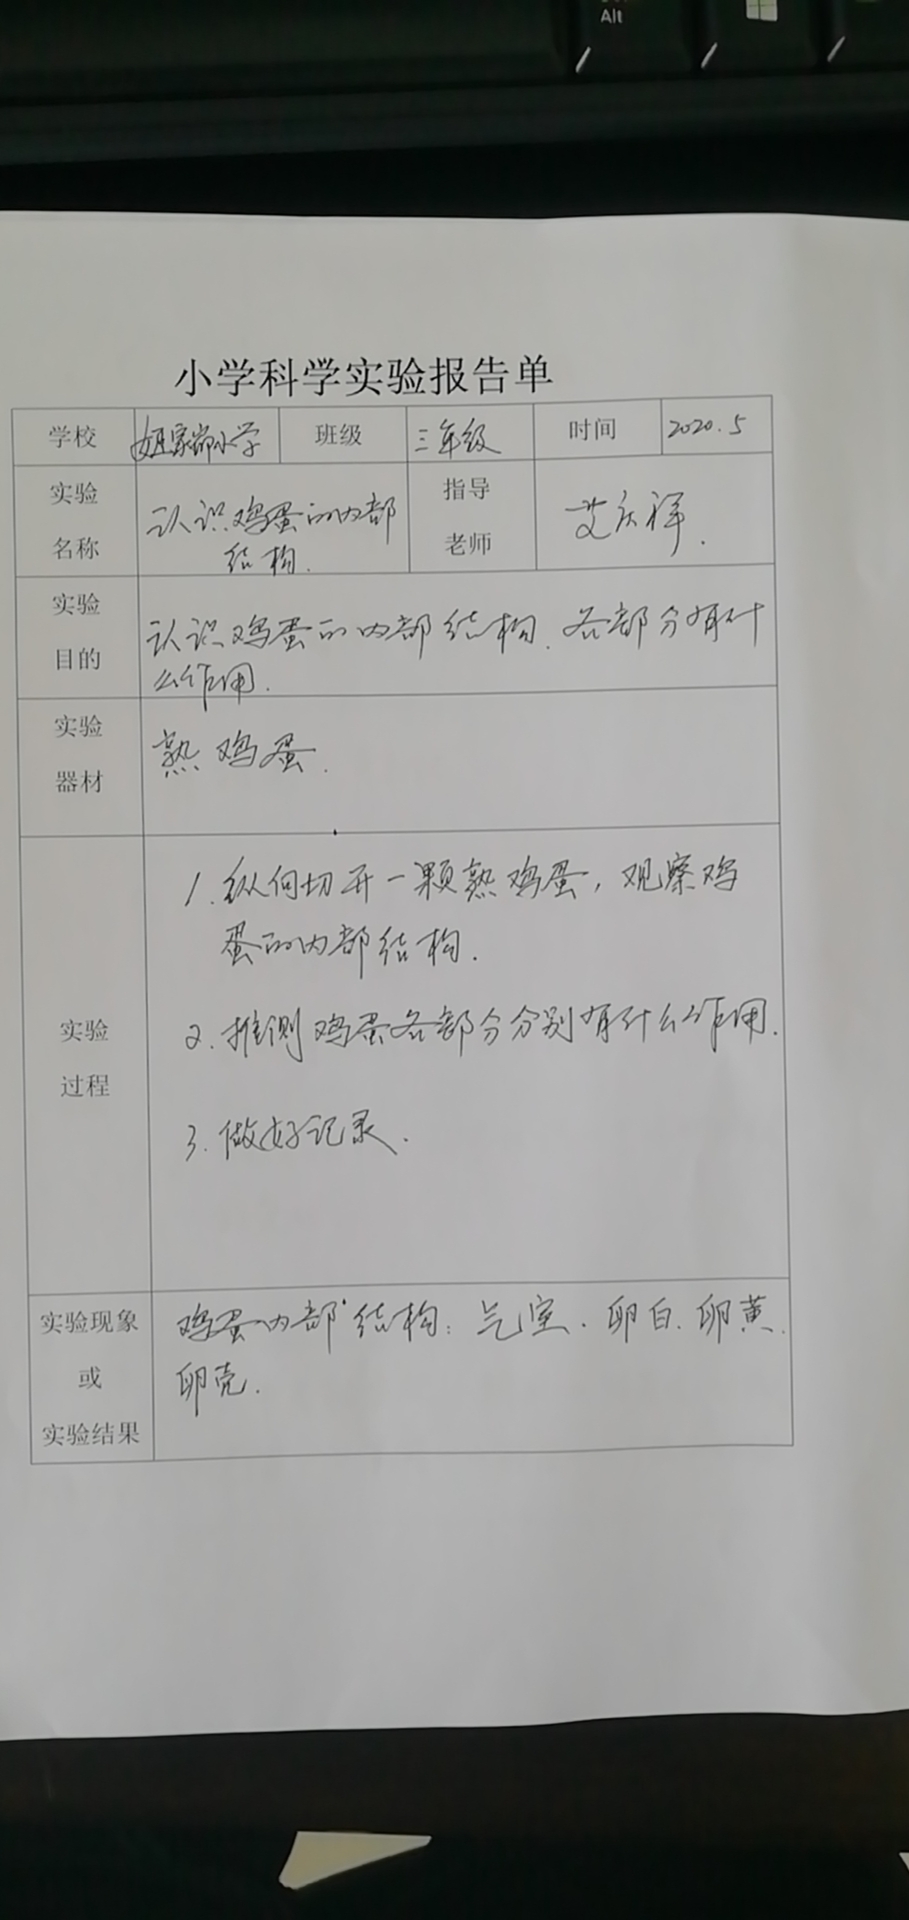 Alt
小学科学实验报告单
学校 姐家岗小学 班级 三年级 时间 2020.5
实验名称 认识鸡蛋的内部结构. 指导老师 艾庆祥.
实验目的 认识鸡蛋的内部结构、各部分有什
么作用.
实验器材 熟鸡蛋.
实验过程
1. 纵向切开一颗熟鸡蛋，观察鸡
蛋的内部结构.
2. 推测鸡蛋各部分分别有什么作用.
3. 做好记录.
实验现象或实验结果
鸡蛋内部结构：气室、卵白、卵黄、
卵壳.